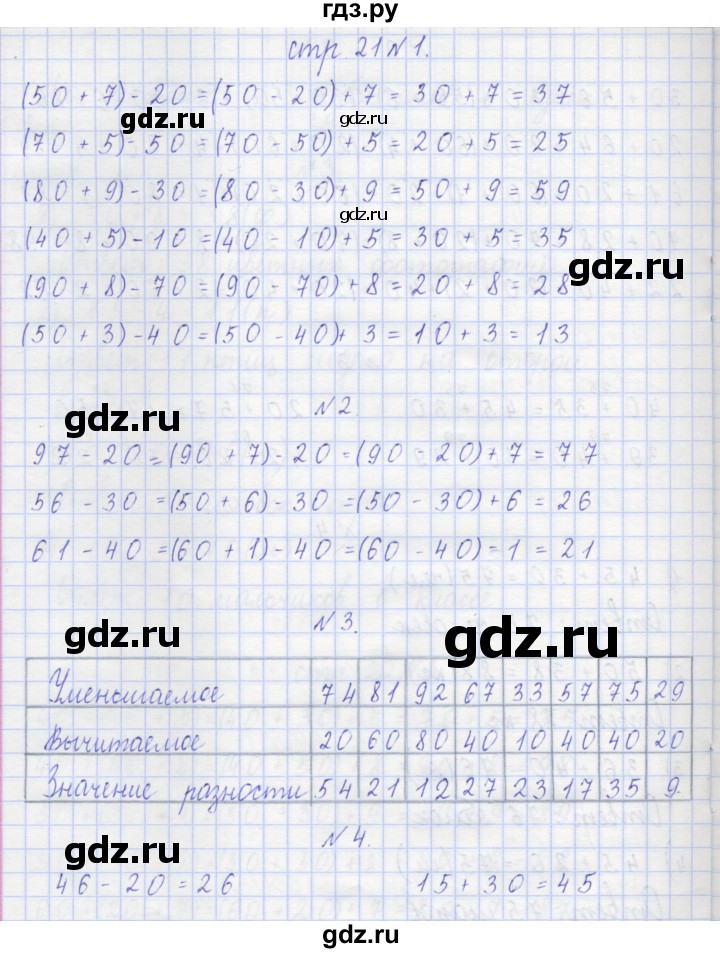 гдз.ру
стр 21 N 1.
(50 + 7) - 20 = (50 - 20) + 7 = 30 + 7 = 37
gdz.ru gdz.ru
(70 + 5) - 50 = (70 - 50) + 5 = 20 + 5 = 25
(80 + 9) - 30 = (80 - 30) + 9 = 50 + 9 = 59
gdz.ru
(40 + 5) - 10 = (40 - 10) + 5 = 30 + 5 = 35
gdz.ru
(90 + 8) - 70 = (90 - 70) + 8 = 20 + 8 = 28
(50 + 3) - 40 = (50 - 40) + 3 = 10 + 3 = 13
gdz.ru
N 2.
97 - 20 = (90 + 7) - 20 = (90 - 20) + 7 = 77
56 - 30 = (50 + 6) - 30 = (50 - 30) + 6 = 26
61 - 40 = (60 + 1) - 40 = (60 - 40) = 1 = 21
gdz.ru
N 3.
gdz.ru
Уменьшаемое 74 81 92 67 33 57 75 29
Вычитаемое 20 60 80 40 10 40 40 20
Значение разности 54 21 12 27 23 17 35 9
gdz.ru
N 4.
46 - 20 = 26 15 + 30 = 45
gdz.ru
gdz.ru